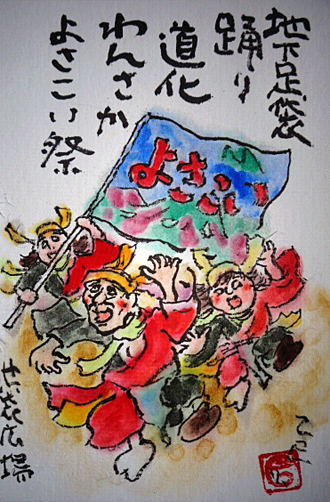 地下足袋
踊り
道化
わんさか
よさこい祭
よさこい
広場